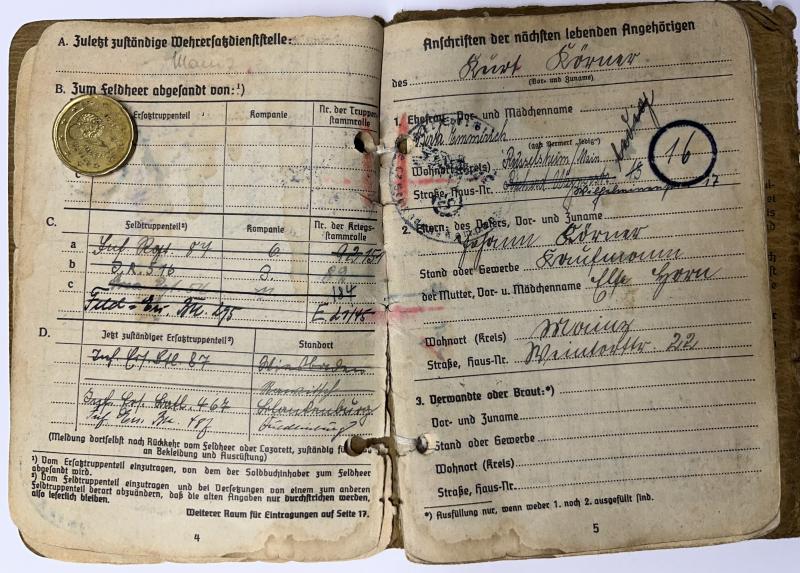 A. Zuletzt zuständige Wehrersatzdienststelle:
Mainz
B. Zum Feldheer abgesandt von:¹)
Ersatztruppenteil Kompanie Nr. der Truppenstammrolle
c
C. Feldtruppenteil²) Kompanie Nr. der Kriegsstammrolle
a Inf. Rgt.
b
c 184
Feld-Ers. Btl.
D. Jetzt zuständiger Ersatztruppenteil²) Standort
Inf. Ers. Btl. 87 Wiesbaden
Inf. Ers. Batl. 467 Blankenburg
(Meldung dortselbst nach Rückkehr vom Feldheer oder Lazarett, zuständig für
an Bekleidung und Ausrüstung)
¹) Vom Ersatztruppenteil einzutragen, von dem der Soldbuchinhaber zum Feldheer
abgesandt wird.
²) Vom Feldtruppenteil einzutragen und bei Versetzungen von einem zum anderen
Feldtruppenteil derart abzuändern, daß die alten Angaben nur durchstrichen werden,
also leserlich bleiben.
Weiterer Raum für Eintragungen auf Seite 17.
4
Anschriften der nächsten lebenden Angehörigen
des Kurt Körner
(Vor- und Zuname)
1. Ehefrau: Vor- und Mädchenname
Emmerich
(ggf. Vermerk „ledig")
Wohnort (Kreis) Rüsselsheim/Main
Straße, Haus-Nr. 17
16
2. Eltern: des Vaters, Vor- und Zuname
Johann Körner
Stand oder Gewerbe Kaufmann
der Mutter, Vor- u. Mädchenname Else Horn
Wohnort (Kreis) Mainz
Straße, Haus-Nr. 22
3. Verwandte oder Braut:*)
Vor- und Zuname
Stand oder Gewerbe
Wohnort (Kreis)
Straße, Haus-Nr.
*) Ausfüllung nur, wenn weder 1. noch 2. ausgefüllt sind.
5